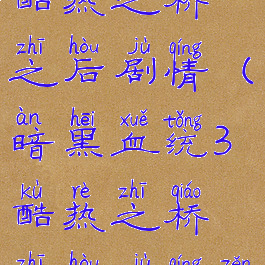 酷热之桥
zhī hòu jù qíng
之后剧情（
àn hēi xuě tǒng
暗黑血统3
kù rè zhī qiáo
酷热之桥
zhī hòu jù qíng zěn